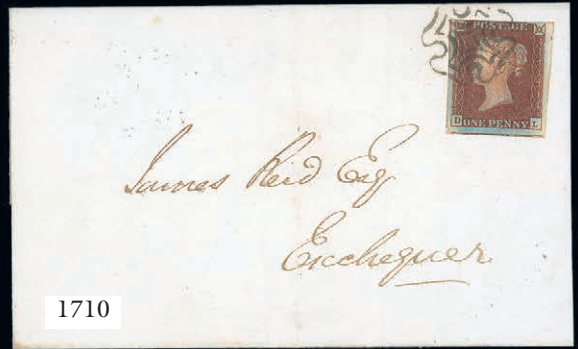 POSTAGE
D ONE PENNY L
James Reid Esq
Exchequer
1710